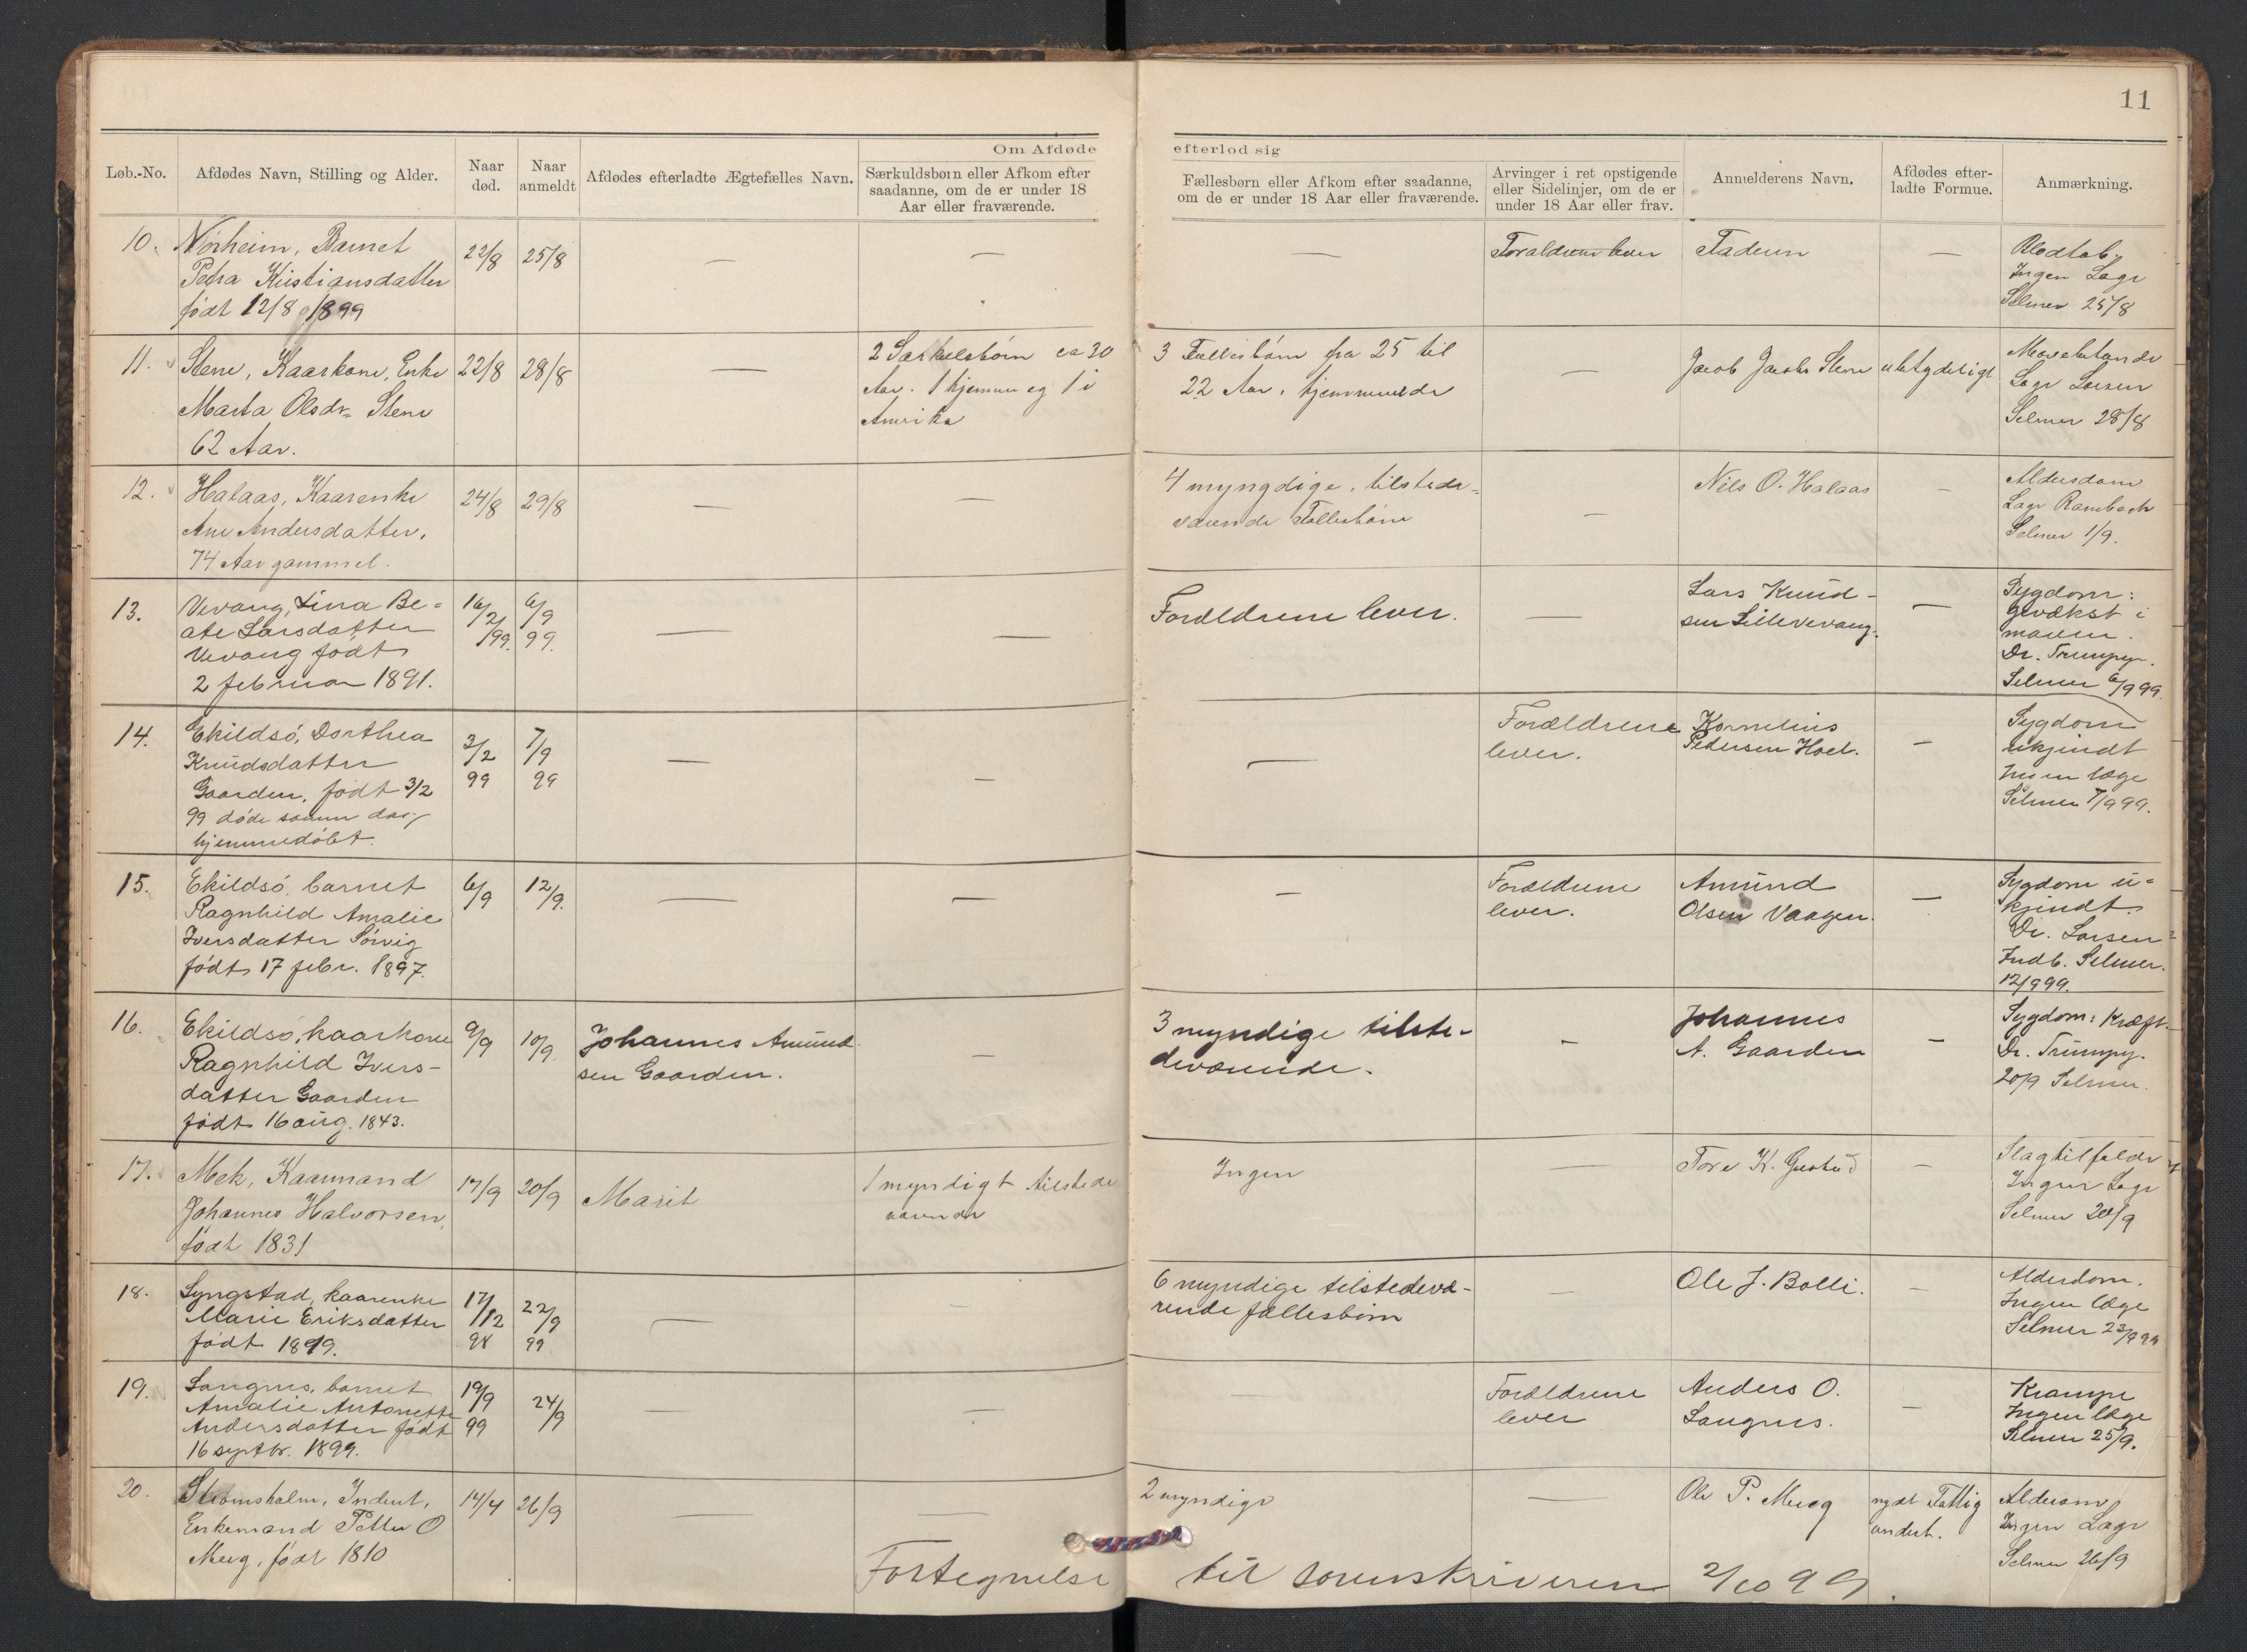 11
Om Afdøde efterlod sig
Løb.-No.
Afdødes Navn, Stilling og Alder.
Naar død.
Naar anmeldt
Afdødes efterladte Ægtefælles Navn.
Særkuldsbørn eller Afkom efter
saadanne, om de er under 18
Aar eller fraværende.
Fællesbørn eller Afkom efter saadanne,
om de er under 18 Aar eller fraværende.
Arvinger i ret opstigende
eller Sidelinjer, om de er
under 18 Aar eller frav.
Anmelderens Navn.
Afdødes efter-
ladte Formue.
Anmærkning.
10.
Norheim, Barnet
Petra Kristiansdatter
født 12/8 1899
22/8
25/8
—
—
—
Forældrene lever
Faderen
—
Blodtab.
Ingen Læge
Selmer 25/8
11.
Stene, Kaarkone, Enke
Marta Olsdr. Stene
62 Aar.
22/8
28/8
—
2 Særkulsbørn ca 30
Aar. 1 hjemme og 1 i
Amerika
3 Fællesbørn fra 25 til
22 Aar, hjemmeværende
—
Jacob Jacobs Stene
ubetydeligt
Læge Larsen
Selmer 28/8
12.
Halaas, Kaarenke
Ane Andersdatter,
74 Aar gammel.
24/8
29/8
—
—
4 myngdige, tilstede-
værende Fællesbørn
—
Nils O. Halaas
—
Aldersdom
Læge Rambech
Selmer 1/9.
13.
Vevang, Lina Be-
ate Larsdatter
Vevang født
2 februar 1891.
16/2/99.
6/9 99.
—
—
Forældrene lever.
—
Lars Knud-
sen Lillevevang.
—
Sygdom:
gevækst i
maven.
Dr. Trumpy.
Selmer 6/9 99.
14.
Ekildsø, Dorthea
Knudsdatter
Gaarden, født 3/2
99 døde samme dag,
hjemmedøbt.
3/2 99
7/9 99
—
—
—
Forældrene
lever.
Kornelius
Pedersen Hoel.
—
Sygdom
ukjendt
Ingen læge
Selmer 7/9 99.
15.
Ekildsø, barnet
Ragnhild Amalie
Iversdatter Sørvig
født 17 febr. 1897.
6/9
12/9.
—
—
—
Forældrene
lever.
Amund
Olsen Vaagen.
—
Sygdom u-
kjendt.
Dr. Larsen
Indb. Selmer.
12/9 99.
16.
Ekildsø, kaarkone
Ragnhild Ivers-
datter Gaarden
født 16 aug. 1843.
9/9
10/9.
Johannes Amund
sen Gaarden.
—
3 myndige tilste-
deværende.
—
Johannes
A. Gaarden
—
Sygdom: Kræft.
Dr. Trumpy.
20/9 Selmer.
17.
Mek, Kaarmand
Johannes Halvorsen,
født 1831
17/9
20/9
Marit
1 myndigt tilstede
værende
Ingen
—
Tore K.
—
Slagtilfælde
Ingen Læge
Selmer 20/9
18.
Lyngstad, kaarenke
Marie Eriksdatter
født 1819.
17/12 98
22/9 99
—
—
6 myndige tilstedevæ-
rende fællesbørn
—
Ole J. Bolli.
—
Alderdom.
Ingen læge
Selmer 23/9 99
19.
Langnes, barnet
Amalie Antonette
Andersdatter født
16 septbr. 1899.
19/9 99
24/9
—
—
—
Forældrene
lever
Anders O.
Langnes.
—
Krampe
Ingen læge
Selmer 25/9.
20.
Strømsholm, Inderst,
Enkemand Petter O
født 1810
14/4
26/9
—
—
2 myndige
—
Ole P.
nydt Fattig
underst.
Alderdom
Ingen Læge
Selmer 26/9
Fortegnelse til sorenskriveren 2/10 99.